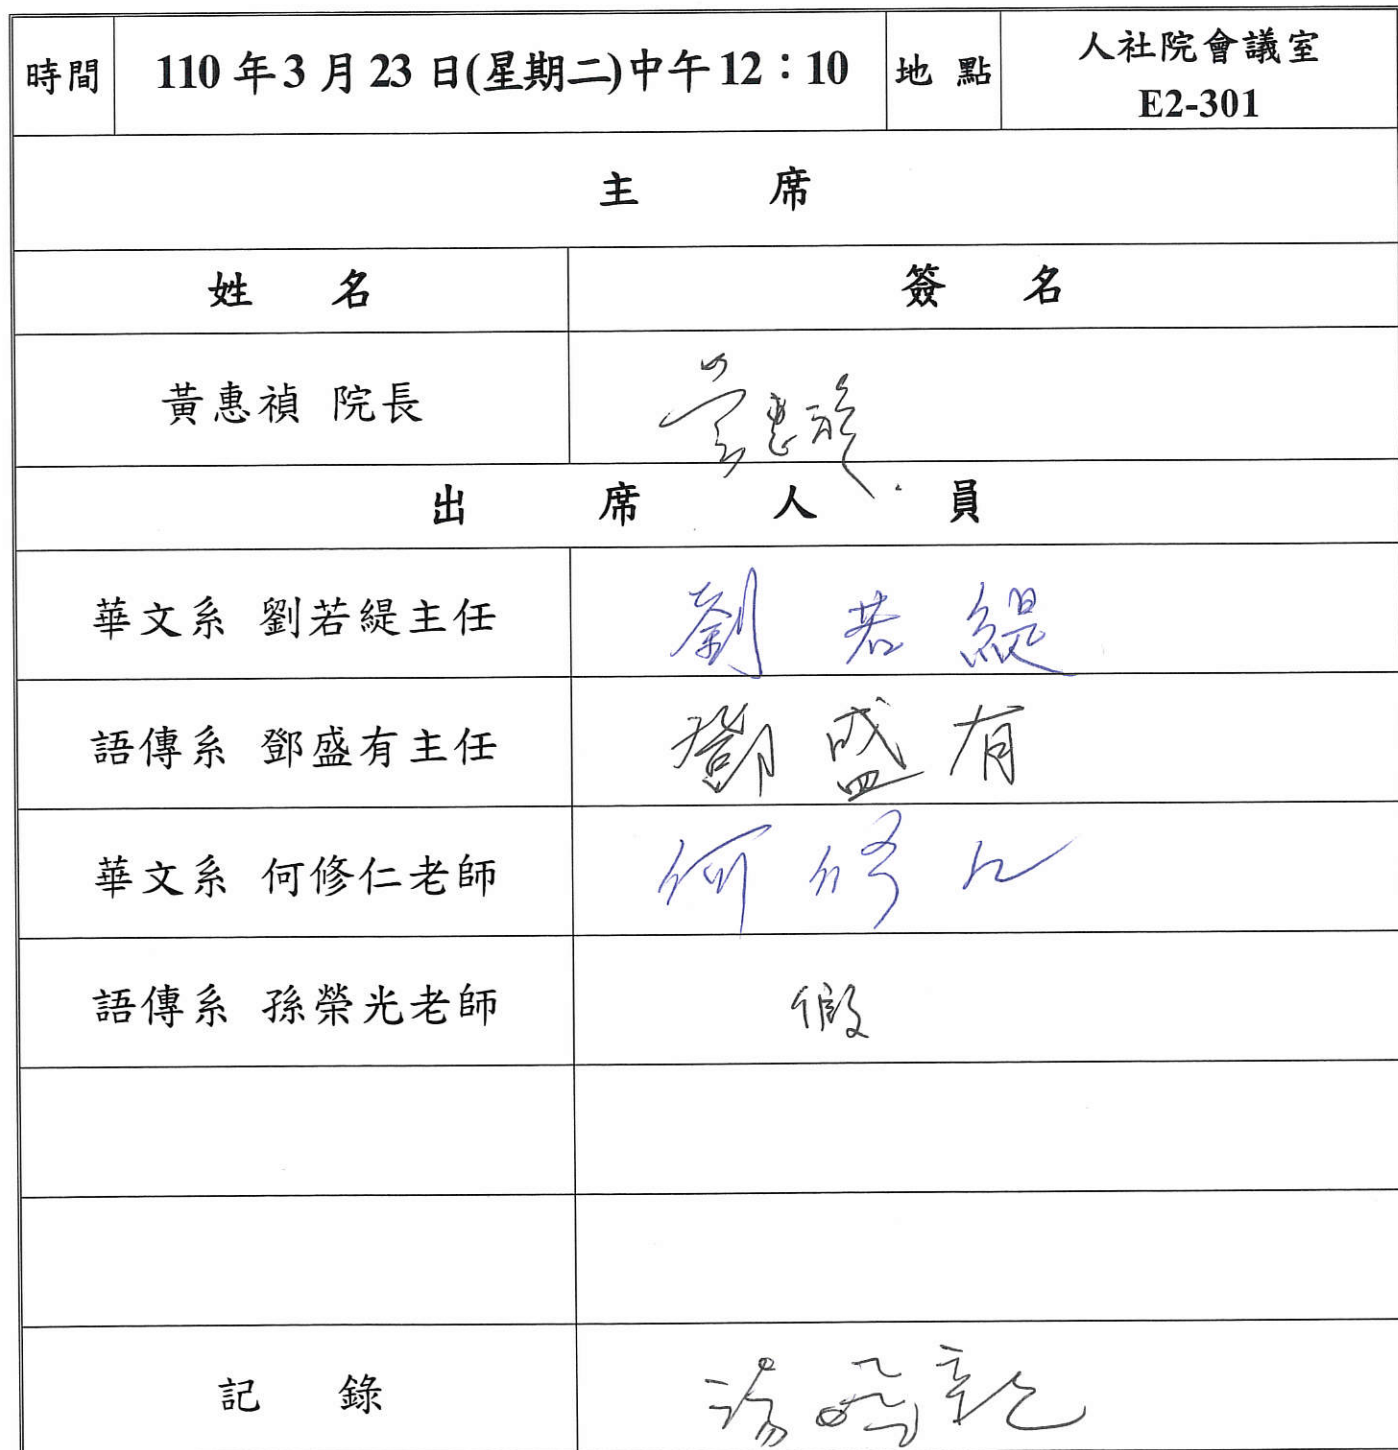 時間 110年3月23日(星期二)中午12:10 地點 人社院會議室
E2-301
主席
姓名 簽名
黃惠禎 院長 黃惠禎
出席人員
華文系 劉若緹主任 劉若緹
語傳系 鄧盛有主任 鄧盛有
華文系 何修仁老師 何修仁
語傳系 孫榮光老師 假
記錄